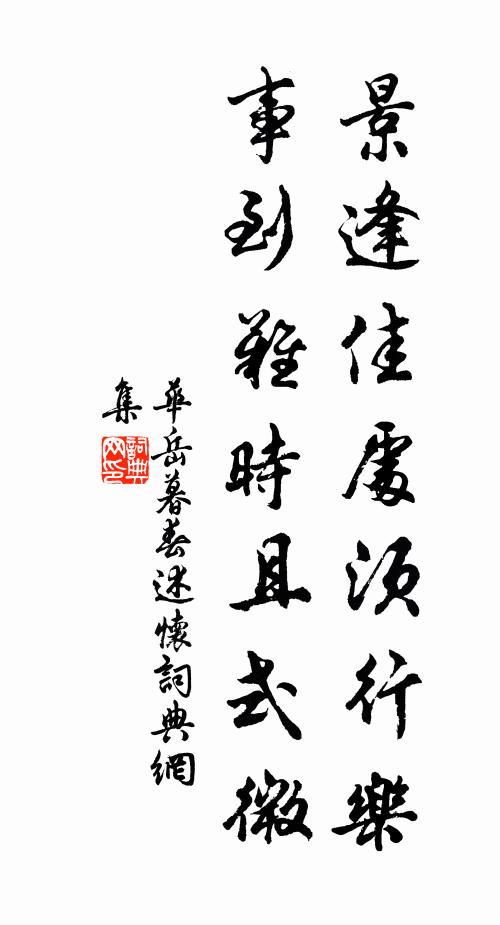 景逢佳處須行樂
事到難時且式微
華岳暮春述懷詞典網
集
詞典
网印